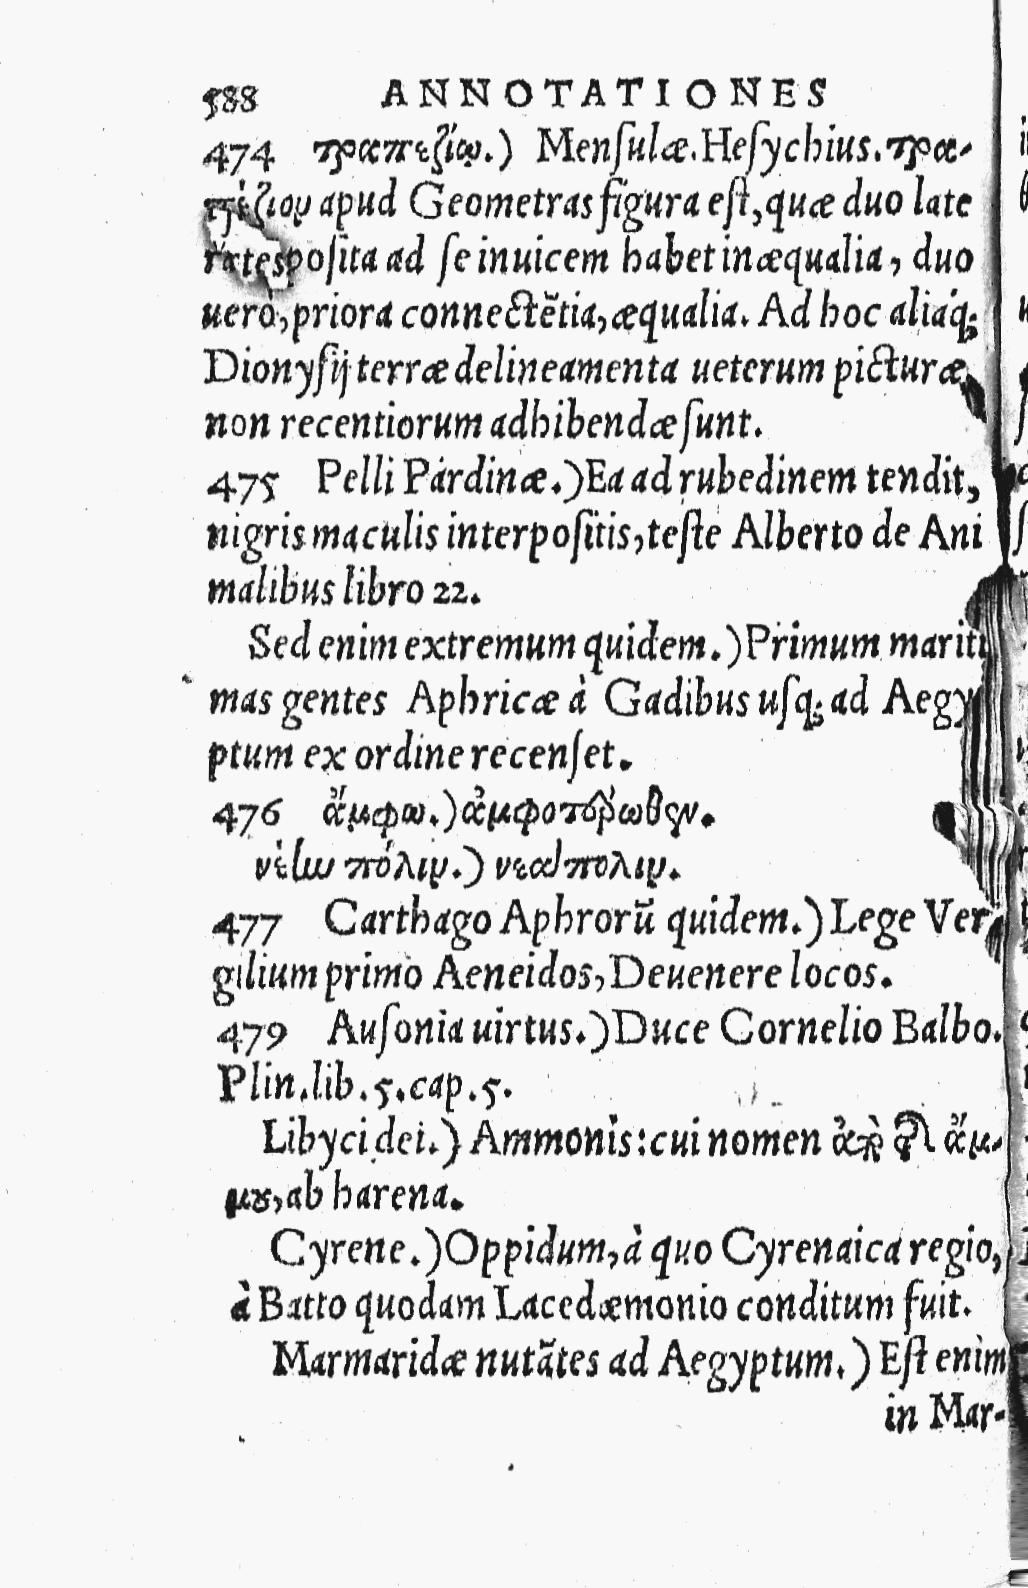 588 ANNOTATIONES
474 τραπεζίῳ.) Menſulæ. Heſychius. τρα-
πέζιον apud Geometras figura eſt, quæ duo late
ra tespoſita ad ſe inuicem habet inæqualia, duo
uerò, priora connectẽtia, æqualia. Ad hoc aliáq;
Dionyſij terræ delineamenta ueterum picturæ,
non recentiorum adhibendæ ſunt.
475 Pelli Pardinæ.) Ea ad rubedinem tendit,
nigris maculis interpoſitis, teſte Alberto de Ani
malibus libro 22.
Sed enim extremum quidem.) Primum mariti
mas gentes Aphricæ à Gadibus uſq; ad Aegy
ptum ex ordine recenſet.
476 ἄμφω.) ἀμφοτέρωθεν.
νέην πόλιν.) νεαπολιν.
477 Carthago Aphrorũ quidem.) Lege Ver
gilium primo Aeneidos, Deuenere locos.
479 Auſonia uirtus.) Duce Cornelio Balbo.
Plin. lib. 5. cap. 5.
Libyci dei.) Ammonis: cui nomen ἀπὸ τῆς ἄμ-
μου, ab harena.
Cyrene.) Oppidum, à quo Cyrenaica regio,
à Batto quodam Lacedæmonio conditum fuit.
Marmaridæ nutãtes ad Aegyptum.) Eſt enim
in Mar-